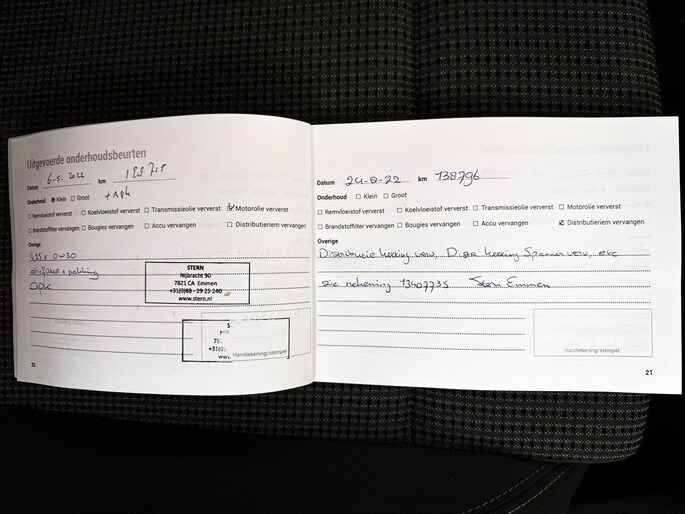 Uitgevoerde onderhoudsbeurten
Datum 6-5-2022 km
Onderhoud ☒ Klein ☐ Groot + APK
☐ Remvloeistof ververst ☐ Koelvloeistof ververst ☐ Transmissieolie ververst ☑ Motorolie ververst
☐ Brandstoffilter vervangen ☐ Bougies vervangen ☐ Accu vervangen ☐ Distributieriem vervangen
Overige
0W30
oliefilter + pakking
APK
STERN
Nijbracht 90
7821 CA Emmen
+31(0)88 - 29 25 240
www.stern.nl
S
78.
+31(0)
www.
Handtekening/stempel
20
Datum 24-8-22 km 138796
Onderhoud ☐ Klein ☐ Groot
☐ Remvloeistof ververst ☐ Koelvloeistof ververst ☐ Transmissieolie ververst ☐ Motorolie ververst
☐ Brandstoffilter vervangen ☐ Bougies vervangen ☐ Accu vervangen ☒ Distributieriem vervangen
Overige
Distributie ketting verv, Distr ketting Spanner verv, etc
zie rekening 13407735 Stern Emmen
Handtekening/stempel
21